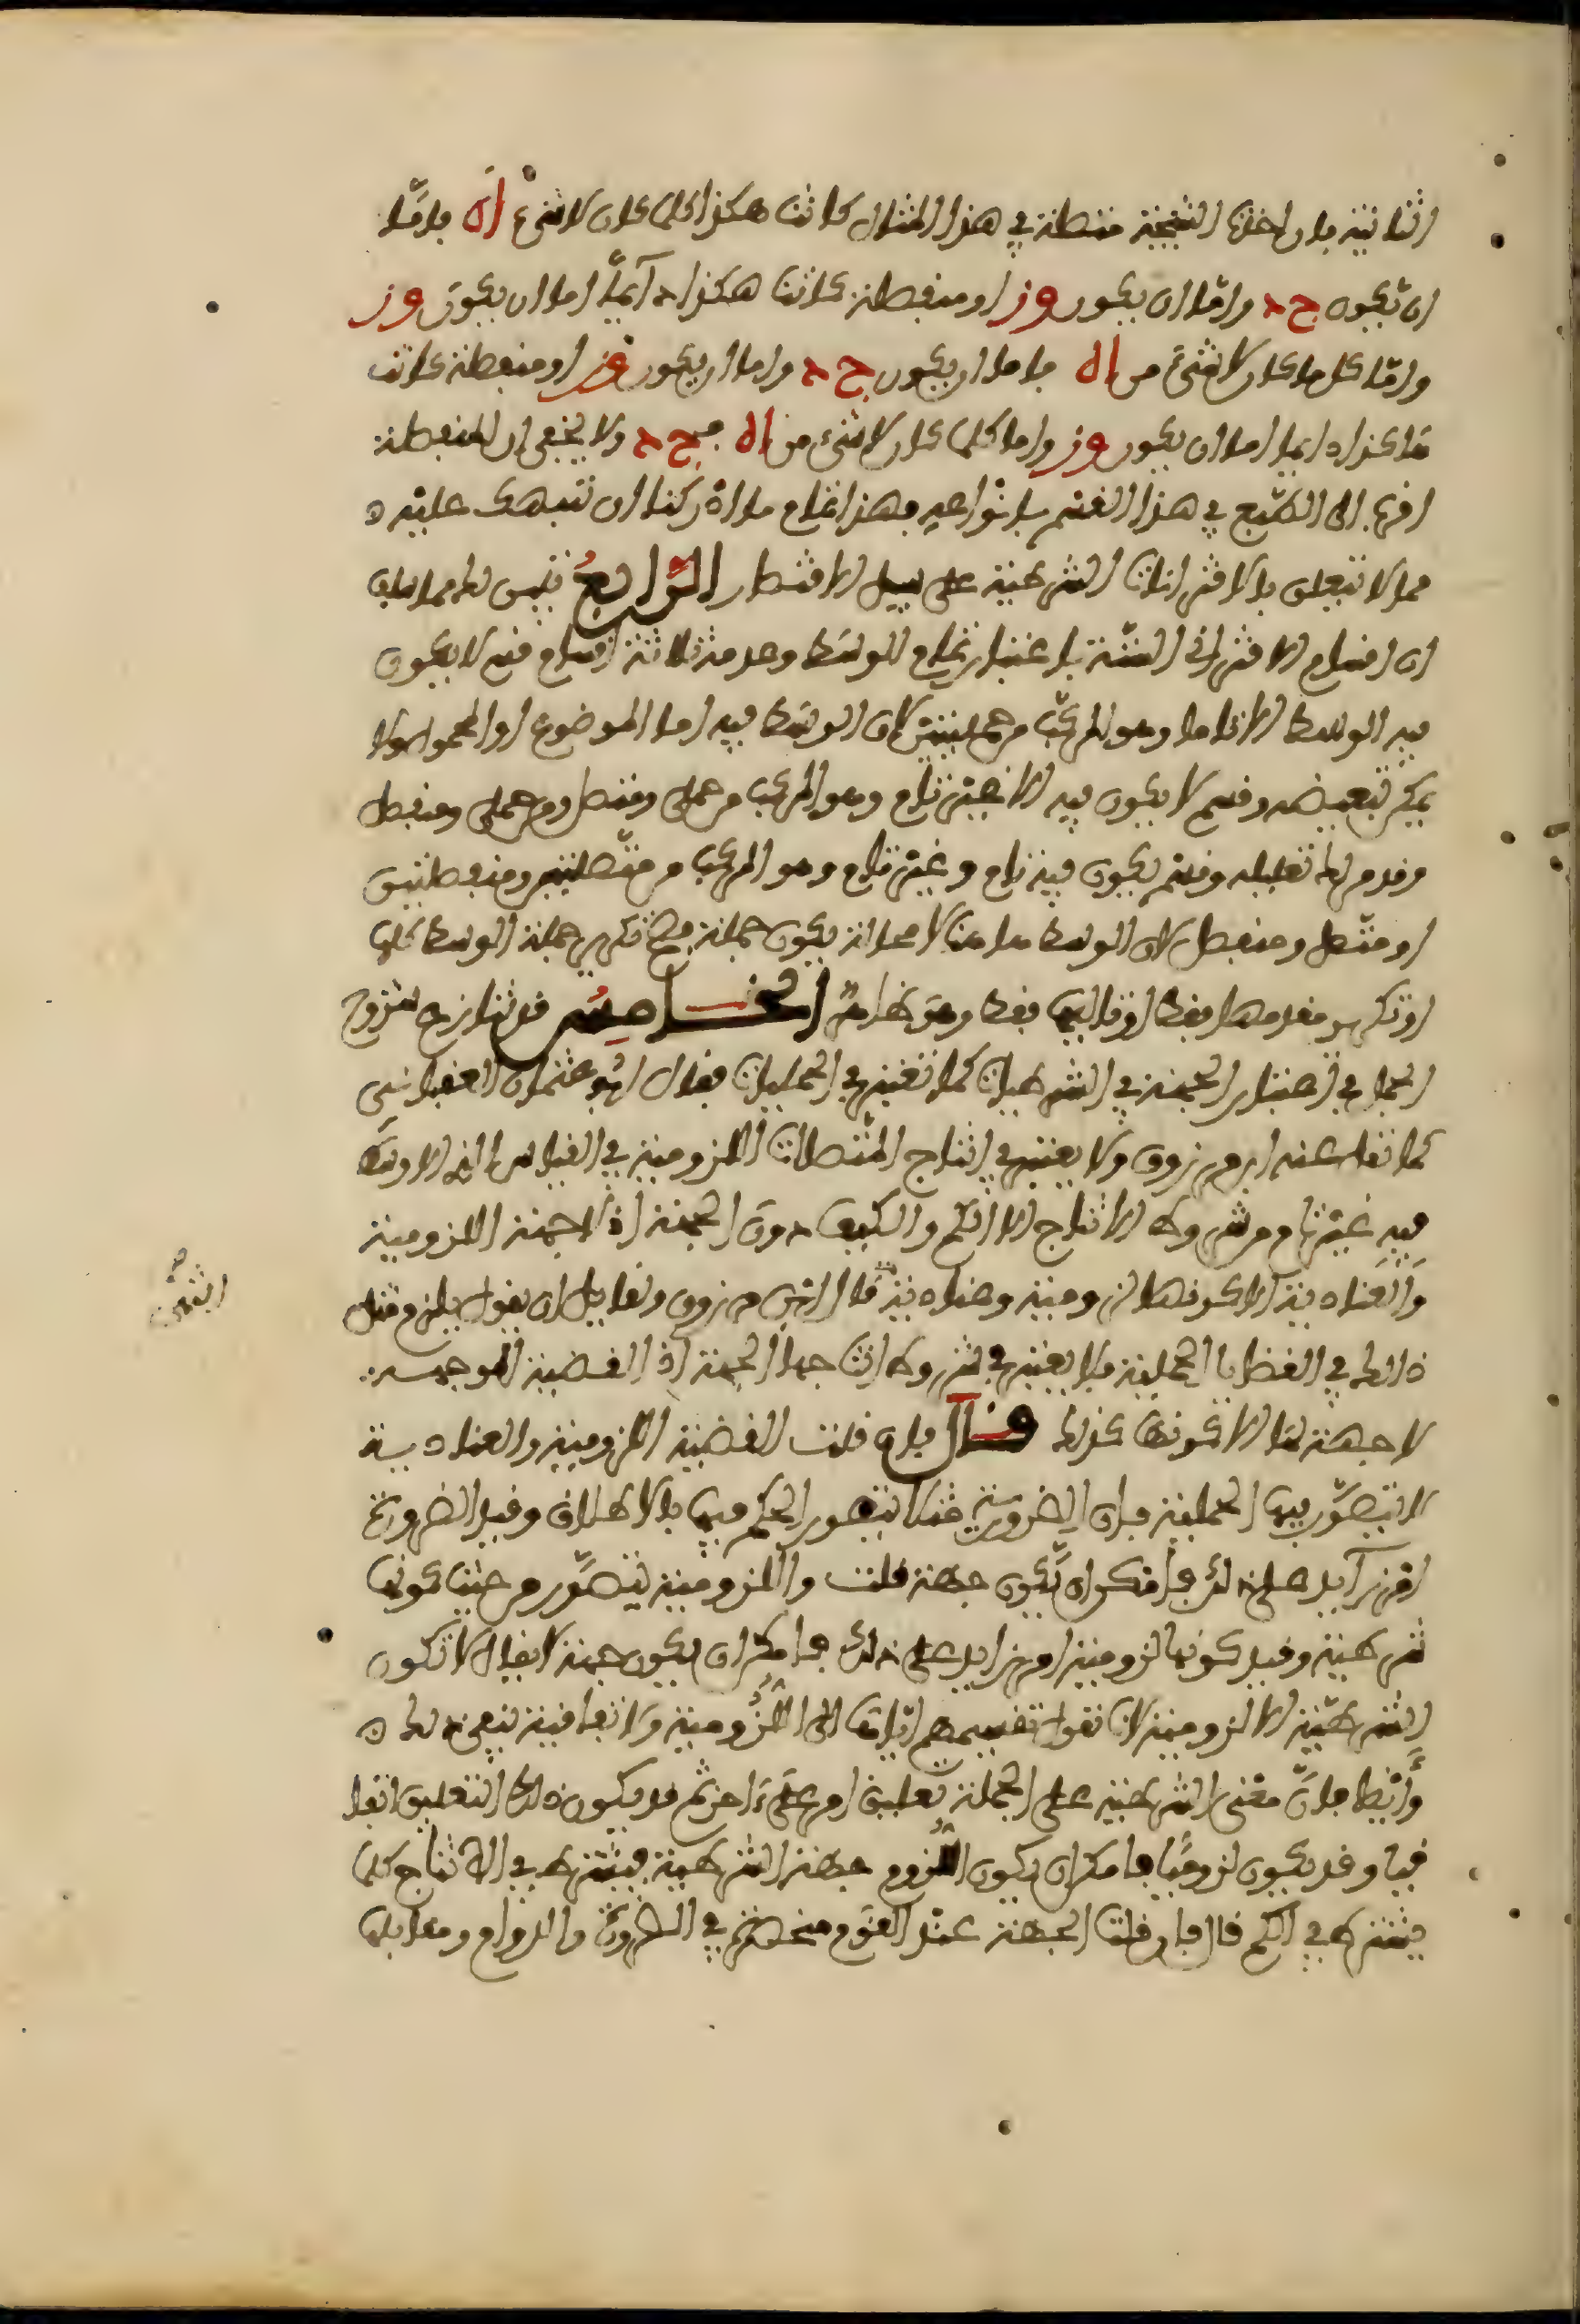 الثانية فإن أخذت النتيجة متصلة في هذا المثال كانت هكذا كلما كان لا شيء ا ه فإما
أن يكون ج د وإما أن يكون و ز أو منفصلة كانت هكذا دائما إما أن يكون و ز
وإما كل ما كان لا شيء من ا ه فإما أن يكون ج د وإما أن يكون و ز أو منفصلة كانت
هكذا دايما إما أن يكون و ز وإما كلما كان لا شيء من ا ه فج د ولا يخفى أن المنفصلة
أقرب إلى الطبع في هذا القسم بأنواعه فهذا تمام ما أردنا أن ننبهك عليه
مما لا يتعلق بالاقترانات الشرطية على سبيل الاختصار الرابع تبين لك مما سلف
أن أقسام الاقتراني الستة باعتبار تمام الوسط وعدمه ثلاثة أقسام قسم لا يكون
فيه الوسط إلا تاما وهو المركب من حمليتين لأن الوسط فيه إما الموضوع أو المحمول ولا
يمكن تبعيضه وقسم لا يكون فيه إلا غير تام وهو المركب من حملي ومتصل ومن حملي ومنفصل
وقد مر لك تعليله وقسم يكون فيه تام وغير تام وهو المركب من متصلتين ومنفصلتين
أو متصل ومنفصل لأن الوسط هاهنا لا محالة يكون جملة فتكرر جملة الوسط كلها
أو تكرر مقدمها فقط أو تاليها فقط وهو ظاهر الخامس قد تنازع شروح
الجمل في اعتبار الجهة في الشرطيات كما تعتبر في الحمليات فقال أبو عثمان العقباني
كما نقل عنه ابن مرزوق ولا يعتبر في إنتاج المتصلات اللزومية في القياس الذي الأوسط
فيه غير تام من شروط الإنتاج إلا الكم والكيف دون الجهة إذ لا جهة اللزومية
والعنادية إلا كونها لزومية وعنادية قال ابن مرزوق ولقايل أن يقول يلزم مثل
ذلك في القضايا الحملية فلا يعتبر في شروط إنتاجها الجهة إذ القضية الموجهة
لا جهة لها إلا كونها كذلك قال فإن قلت القضية اللزومية والعنادية
لا يتصور فيها الحملية فإن الضرورية مثلا يتصور الحكم فيها بالإطلاق وقيد الضرورة
أمر زايد على ذلك فأمكن أن يكون جهة قلت واللزومية يتصور من حيث كونها
شرطية وقيد كونها لزومية أمر زايد على ذلك فأمكن أن يكون جهة لا يقال لا تكون
الشرطية إلا لزومية لأنا نقول تقسيمهم إياها إلى اللزومية والاتفاقية ينفي ذلك
وأيضا فإن معنى الشرطية على الجملة تعليق أمر على آخر ثم قد يكون ذلك التعليق اتفا
قيا وقد يكون لزوميا فأمكن أن يكون اللزوم جهة الشرطية فيشترط في الإنتاج كما
يشترط في الكم قال فإن قلت الجهة عند القوم منحصرة في الضرورة والدوام ومقابلها